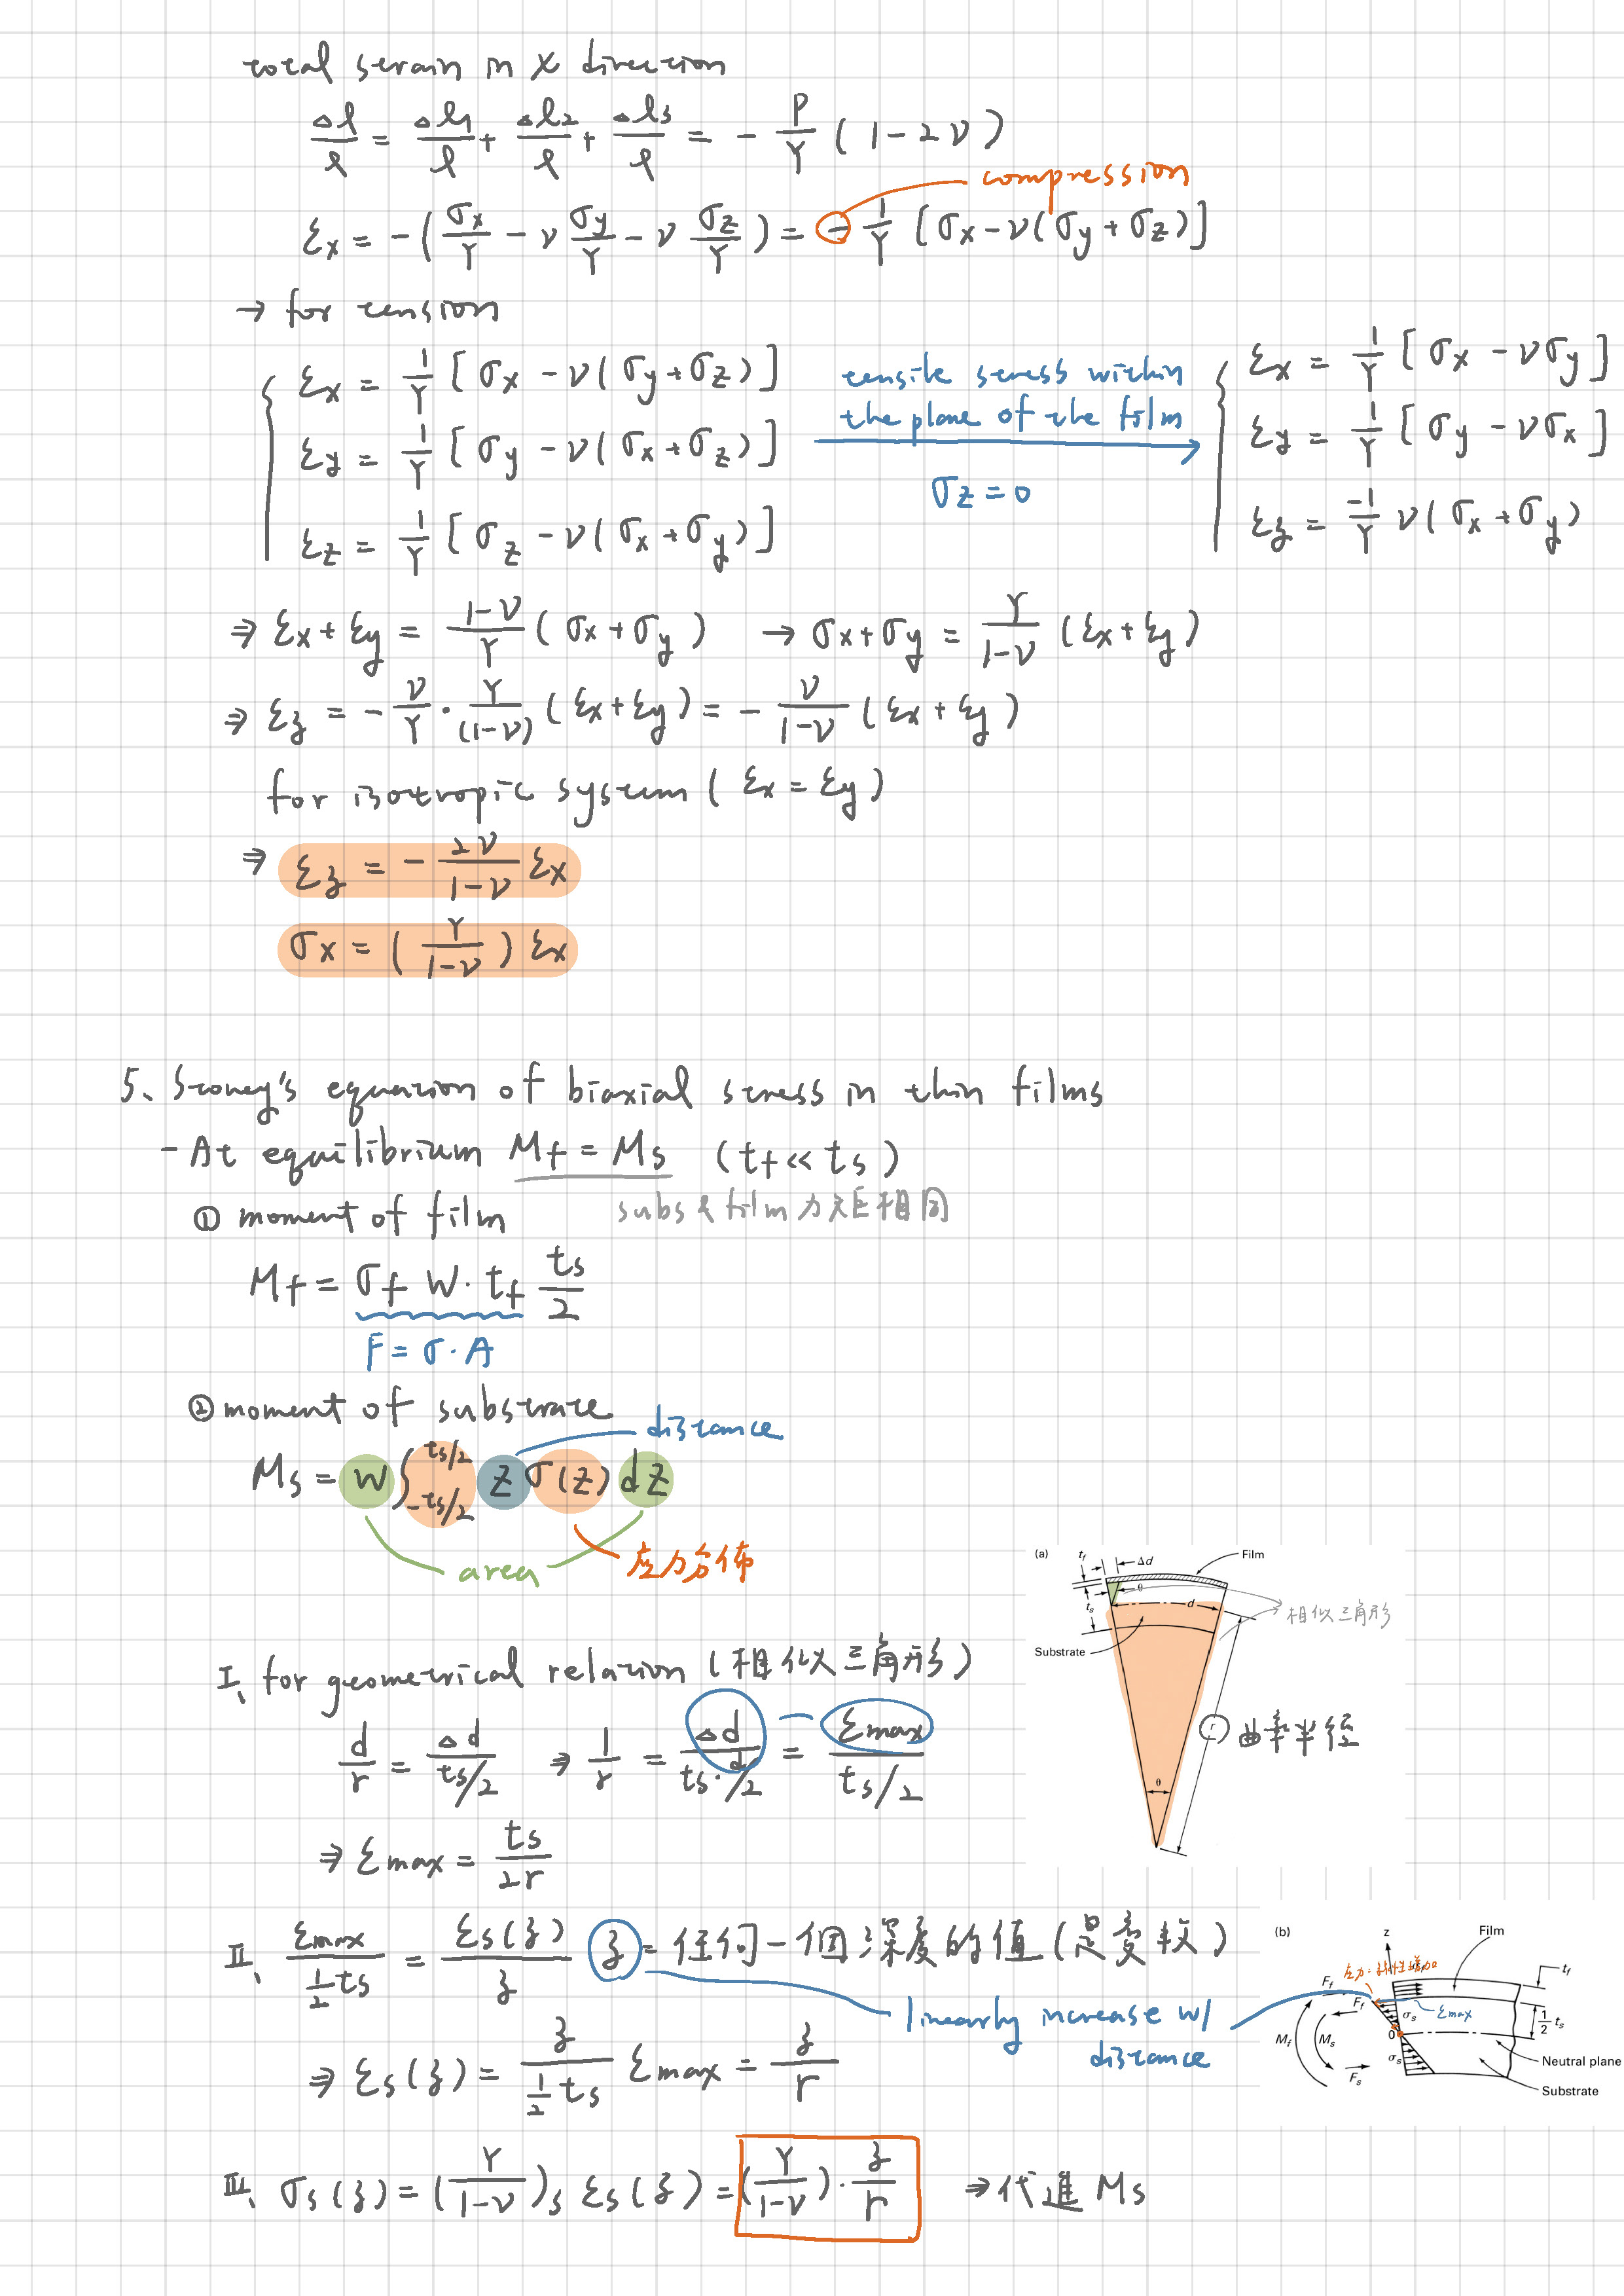 total strain in x direction
Δl/l = Δl1/l + Δl2/l + Δl3/l = - P/Y (1-2ν)
compression
εx = -(σx/Y - ν σy/Y - ν σz/Y) = - 1/Y [σx-ν(σy+σz)]
→ for tension
εx = 1/Y [σx - ν(σy+σz)]
εy = 1/Y [σy - ν(σx+σz)]
εz = 1/Y [σz - ν(σx+σy)]
tensile stress within
the plane of the film
σz = 0
εx = 1/Y [σx - νσy]
εy = 1/Y [σy - νσx]
εz = -1/Y ν(σx+σy)
⇒ εx+εy = 1-ν/Y (σx+σy) → σx+σy = Y/1-ν (εx+εy)
⇒ εz = - ν/Y · Y/(1-ν) (εx+εy) = - ν/1-ν (εx+εy)
for isotropic system (εx = εy)
⇒ εz = - 2ν/1-ν εx
σx = (Y/1-ν) εx
5、Stoney's equation of biaxial stress in thin films
- At equilibrium Mf = Ms (tf << ts)
subs & film 力矩相同
① moment of film
Mf = σf W · tf ts/2
F = σ · A
② moment of substrate
distance
Ms = W ∫ -ts/2 ts/2 z σ(z) dz
area
应力分佈
(a)
tf
Δd
Film
θ
ts
d
相似三角形
Substrate
r
曲率半径
θ
I、for geometrical relation (相似三角形)
d/r = Δd/ts/2 ⇒ 1/r = Δd/ts·d/2 = εmax/ts/2
⇒ εmax = ts/2r
II、εmax/½ts = εs(z)/z z = 任何一個深度的值(是变数)
linearly increase w/
distance
⇒ εs(z) = z/½ts εmax = z/r
(b)
z
Film
应力:線性增加
tf
Ff
Ff
σs
εmax
½ ts
Mf
Ms
0
σs
Fs
Neutral plane
Substrate
III、σs(z) = (Y/1-ν)s εs(z) = (Y/1-ν) · z/r ⇒ 代進 Ms